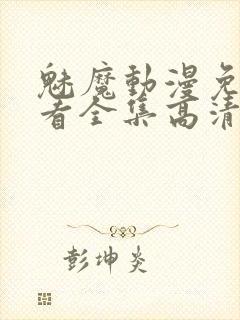 魅魔動漫免
看全集高清
彭坤炎